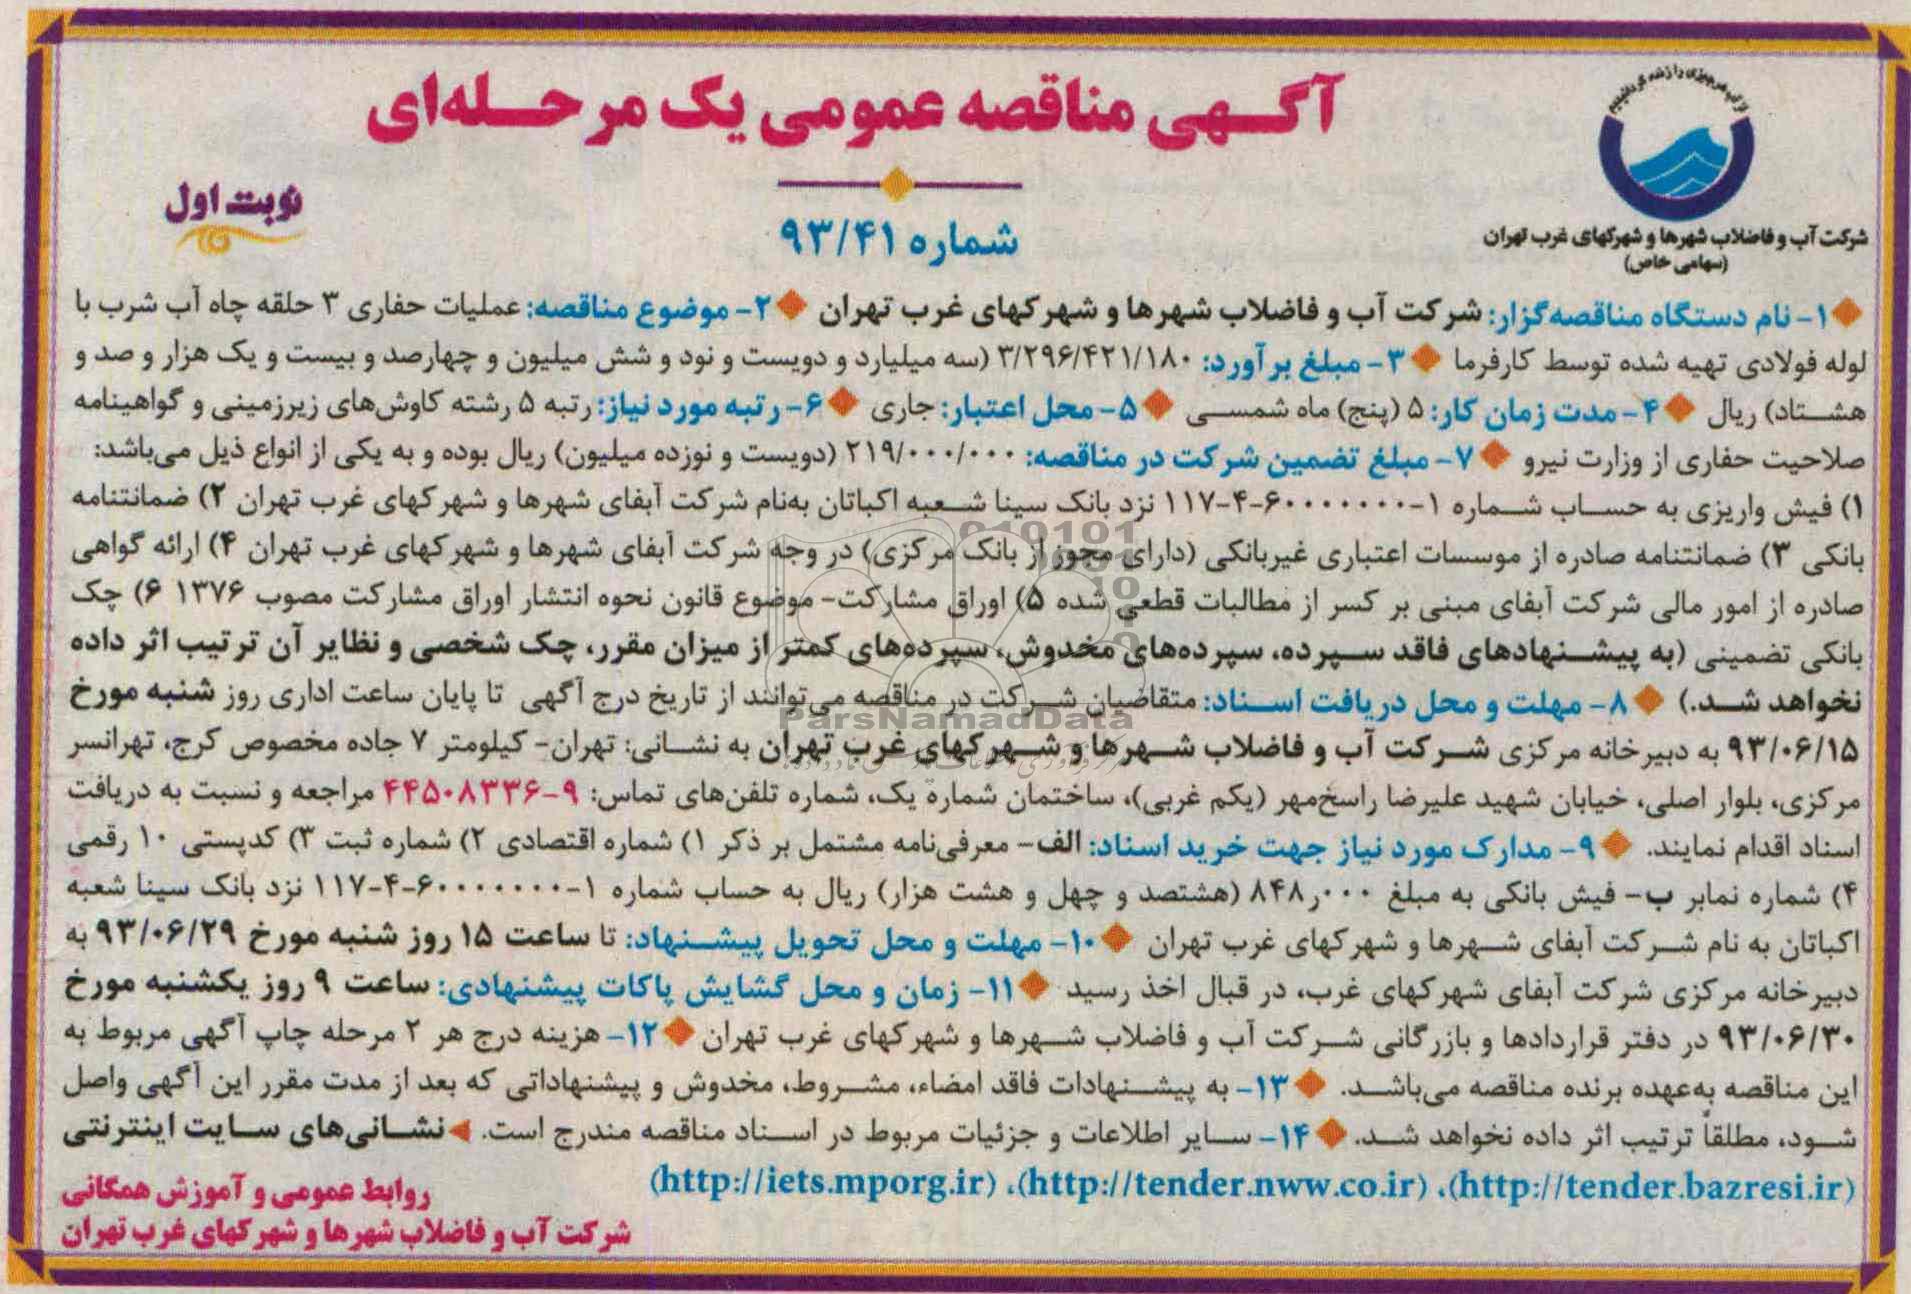 از آب هر چیزی را زنده گردانیدیم
آگهی مناقصه عمومی یک مرحله‌ای
نوبت اول
شماره ۹۳/۴۱
شرکت آب و فاضلاب شهرها و شهرکهای غرب تهران
(سهامی خاص)
۱- نام دستگاه مناقصه‌گزار: شرکت آب و فاضلاب شهرها و شهرکهای غرب تهران ۲- موضوع مناقصه: عملیات حفاری ۳ حلقه چاه آب شرب با
لوله فولادی تهیه شده توسط کارفرما ۳- مبلغ برآورد: ۳/۲۹۶/۴۲۱/۱۸۰ (سه میلیارد و دویست و نود و شش میلیون و چهارصد و بیست و یک هزار و صد و
هشتاد) ریال ۴- مدت زمان کار: ۵ (پنج) ماه شمسی ۵- محل اعتبار: جاری ۶- رتبه مورد نیاز: رتبه ۵ رشته کاوش‌های زیرزمینی و گواهینامه
صلاحیت حفاری از وزارت نیرو ۷- مبلغ تضمین شرکت در مناقصه: ۲۱۹/۰۰۰/۰۰۰ (دویست و نوزده میلیون) ریال بوده و به یکی از انواع ذیل می‌باشد:
۱) فیش واریزی به حساب شماره ۱-۶۰۰۰۰۰۰۰-۴-۱۱۷ نزد بانک سینا شعبه اکباتان به‌نام شرکت آبفای شهرها و شهرکهای غرب تهران ۲) ضمانتنامه
بانکی ۳) ضمانتنامه صادره از موسسات اعتباری غیربانکی (دارای مجوز از بانک مرکزی) در وجه شرکت آبفای شهرها و شهرکهای غرب تهران ۴) ارائه گواهی
صادره از امور مالی شرکت آبفای مبنی بر کسر از مطالبات قطعی شده ۵) اوراق مشارکت- موضوع قانون نحوه انتشار اوراق مشارکت مصوب ۱۳۷۶ ۶) چک
بانکی تضمینی (به پیشنهادهای فاقد سپرده، سپرده‌های مخدوش، سپرده‌های کمتر از میزان مقرر، چک شخصی و نظایر آن ترتیب اثر داده
نخواهد شد.) ۸- مهلت و محل دریافت اسناد: متقاضیان شرکت در مناقصه می‌توانند از تاریخ درج آگهی تا پایان ساعت اداری روز شنبه مورخ
۹۳/۰۶/۱۵ به دبیرخانه مرکزی شرکت آب و فاضلاب شهرها و شهرکهای غرب تهران به نشانی: تهران- کیلومتر ۷ جاده مخصوص کرج، تهرانسر
مرکزی، بلوار اصلی، خیابان شهید علیرضا راسخ‌مهر (یکم غربی)، ساختمان شماره یک، شماره تلفن‌های تماس: ۹-۴۴۵۰۸۳۳۶ مراجعه و نسبت به دریافت
اسناد اقدام نمایند. ۹- مدارک مورد نیاز جهت خرید اسناد: الف- معرفی‌نامه مشتمل بر ذکر ۱) شماره اقتصادی ۲) شماره ثبت ۳) کدپستی ۱۰ رقمی
۴) شماره نمابر ب- فیش بانکی به مبلغ ۸۴۸٫۰۰۰ (هشتصد و چهل و هشت هزار) ریال به حساب شماره ۱-۶۰۰۰۰۰۰۰-۴-۱۱۷ نزد بانک سینا شعبه
اکباتان به نام شرکت آبفای شهرها و شهرکهای غرب تهران ۱۰- مهلت و محل تحویل پیشنهاد: تا ساعت ۱۵ روز شنبه مورخ ۹۳/۰۶/۲۹ به
دبیرخانه مرکزی شرکت آبفای شهرکهای غرب، در قبال اخذ رسید ۱۱- زمان و محل گشایش پاکات پیشنهادی: ساعت ۹ روز یکشنبه مورخ
۹۳/۰۶/۳۰ در دفتر قراردادها و بازرگانی شرکت آب و فاضلاب شهرها و شهرکهای غرب تهران ۱۲- هزینه درج هر ۲ مرحله چاپ آگهی مربوط به
این مناقصه به‌عهده برنده مناقصه می‌باشد. ۱۳- به پیشنهادات فاقد امضاء، مشروط، مخدوش و پیشنهاداتی که بعد از مدت مقرر این آگهی واصل
شود، مطلقاً ترتیب اثر داده نخواهد شد. ۱۴- سایر اطلاعات و جزئیات مربوط در اسناد مناقصه مندرج است. نشانی‌های سایت اینترنتی
(http://tender.bazresi.ir)، (http://tender.nww.co.ir)، (http://iets.mporg.ir)
روابط عمومی و آموزش همگانی
شرکت آب و فاضلاب شهرها و شهرکهای غرب تهران
ParsNamadData